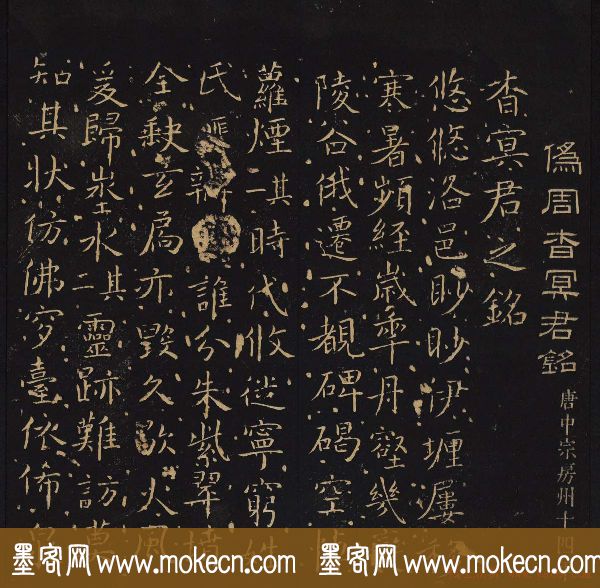 偽周杳冥君銘
唐中宗房州十四
杳冥君之銘
悠悠洛邑眇眇伊瀍屢
寒暑頻經歲年丹壑幾
陵谷俄遷不覩碑碣空
蘿煙其一時代攸徙寧窮姓
氏匪辯誰分朱紫翠
全缺玄扃亦毀久歇火風
爰歸水其二靈跡難訪
知其狀仿佛穸臺依俙
墨客网 www.mokecn.com 墨客网 www.mokecn.com